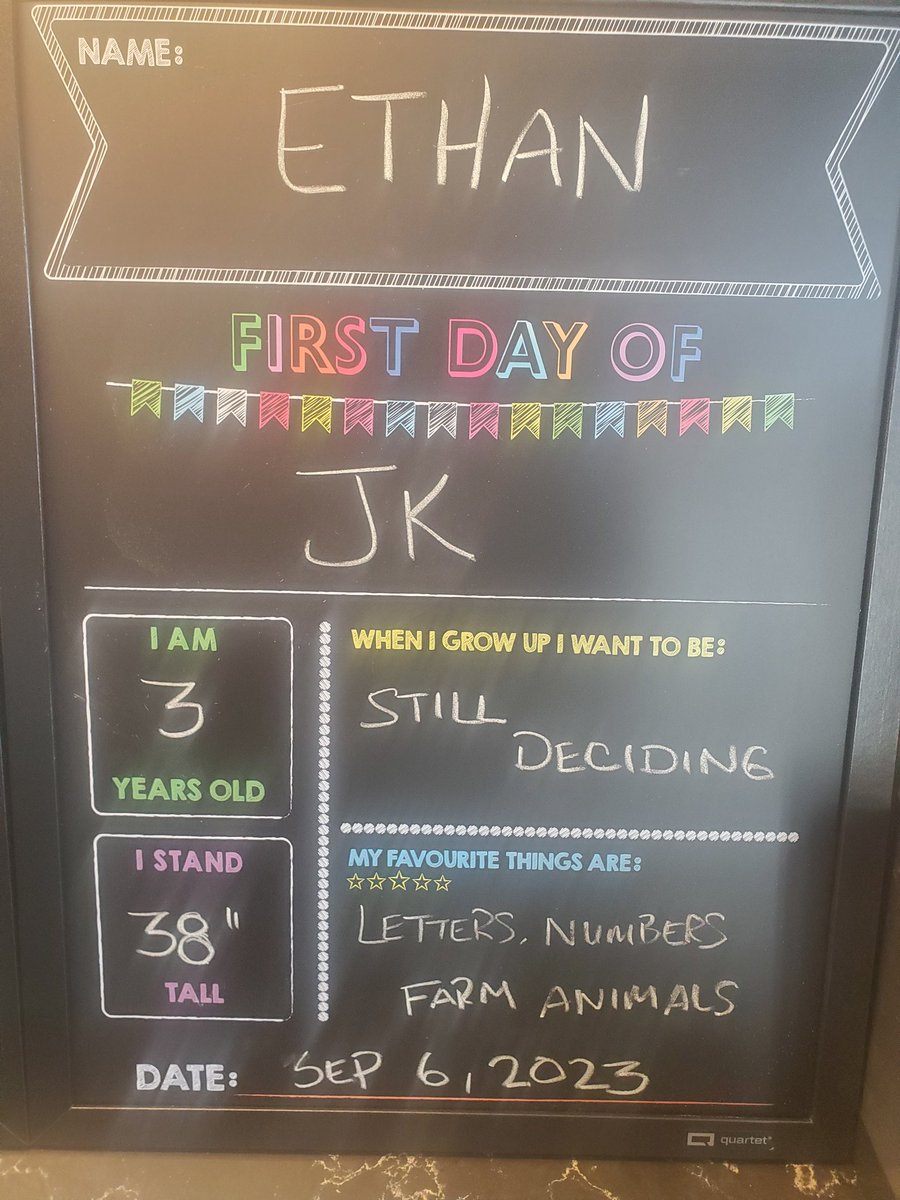 NAME:
ETHAN
FIRST DAY OF
JK
I AM
3
YEARS OLD
WHEN I GROW UP I WANT TO BE:
STILL
DECIDING
I STAND
38"
TALL
MY FAVOURITE THINGS ARE:
LETTERS, NUMBERS
FARM ANIMALS
DATE: SEP 6, 2023
quartet®